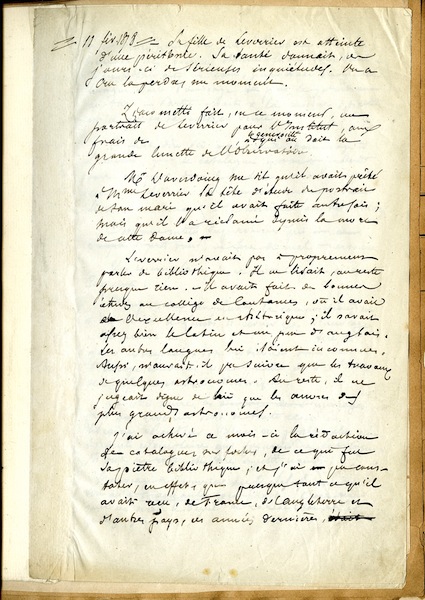 11 fév. 1878 — La fille de Leverrier est atteinte
d'une péritonite. Sa santé donnait, ces
jours-ci de sérieuses inquiétudes. On a
cru la perdre un moment.
fait, en ce moment, un
portrait de Leverrier pour l'Institut, aux
frais de
grande lunette de l'Observatoire.
me dit qu'il avait prêté
à Mme Leverrier la tête d'étude du portrait
de son mari qu'il avait faite autrefois;
mais qu'il l'a réclamé depuis la mort
de cette dame.
Leverrier n'avait pas à proprement
parler de bibliothèque. Il ne lisait, au reste
presque rien. Il avait fait de bonnes
études au collège de Coutances, où il avait
excellence en rhétorique; il savait
assez bien le latin et un peu d'anglais.
Les autres langues lui étaient inconnues.
Aussi, n'aurait-il pu suivre que les travaux
de quelques astronomes. Au reste, il ne
jugeait digne de lui que les œuvres des
plus grands astronomes.
J'ai achevé ce mois-ci la rédaction
de catalogues sur fiches, de ce que fut
sa piètre bibliothèque; et j'ai pu cons-
tater, en effet, que presque tout ce qu'il
avait reçu, de France, d'Angleterre et
d'autres pays, ces années dernières, était